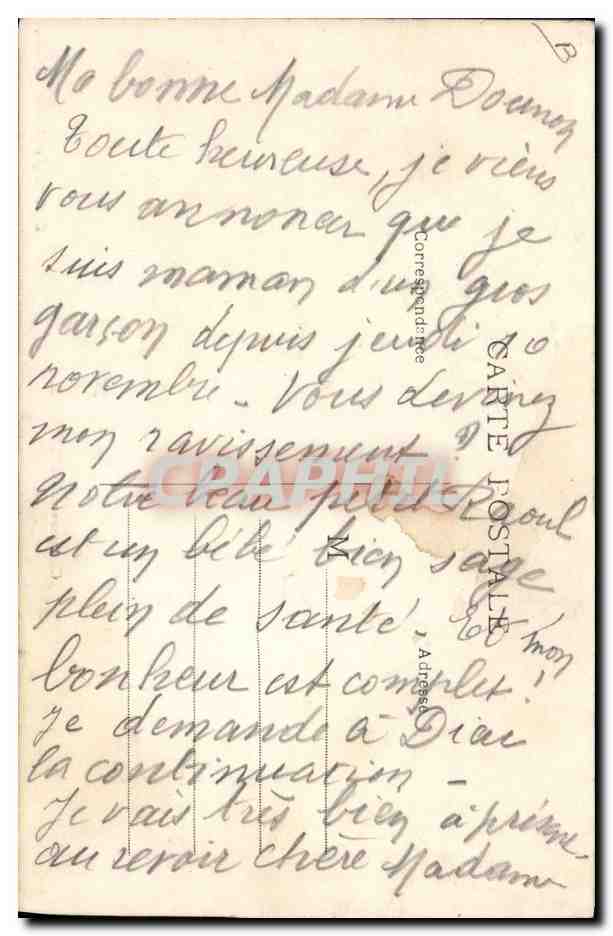 B
Ma bonne Madame
Toute heureuse, je viens
vous annoncer que je
suis maman d'un gros
garçon depuis jeudi 10
novembre - Vous devinez
mon ravissement !
Notre beau petit Raoul
est un bébé bien sage
plein de santé, Et mon
bonheur est complet !
Je demande à Dieu
la continuation -
Je vais très bien à présent
au revoir chère Madame
Correspondance
CARTE POSTALE
M
Adresse
CPAPHIL